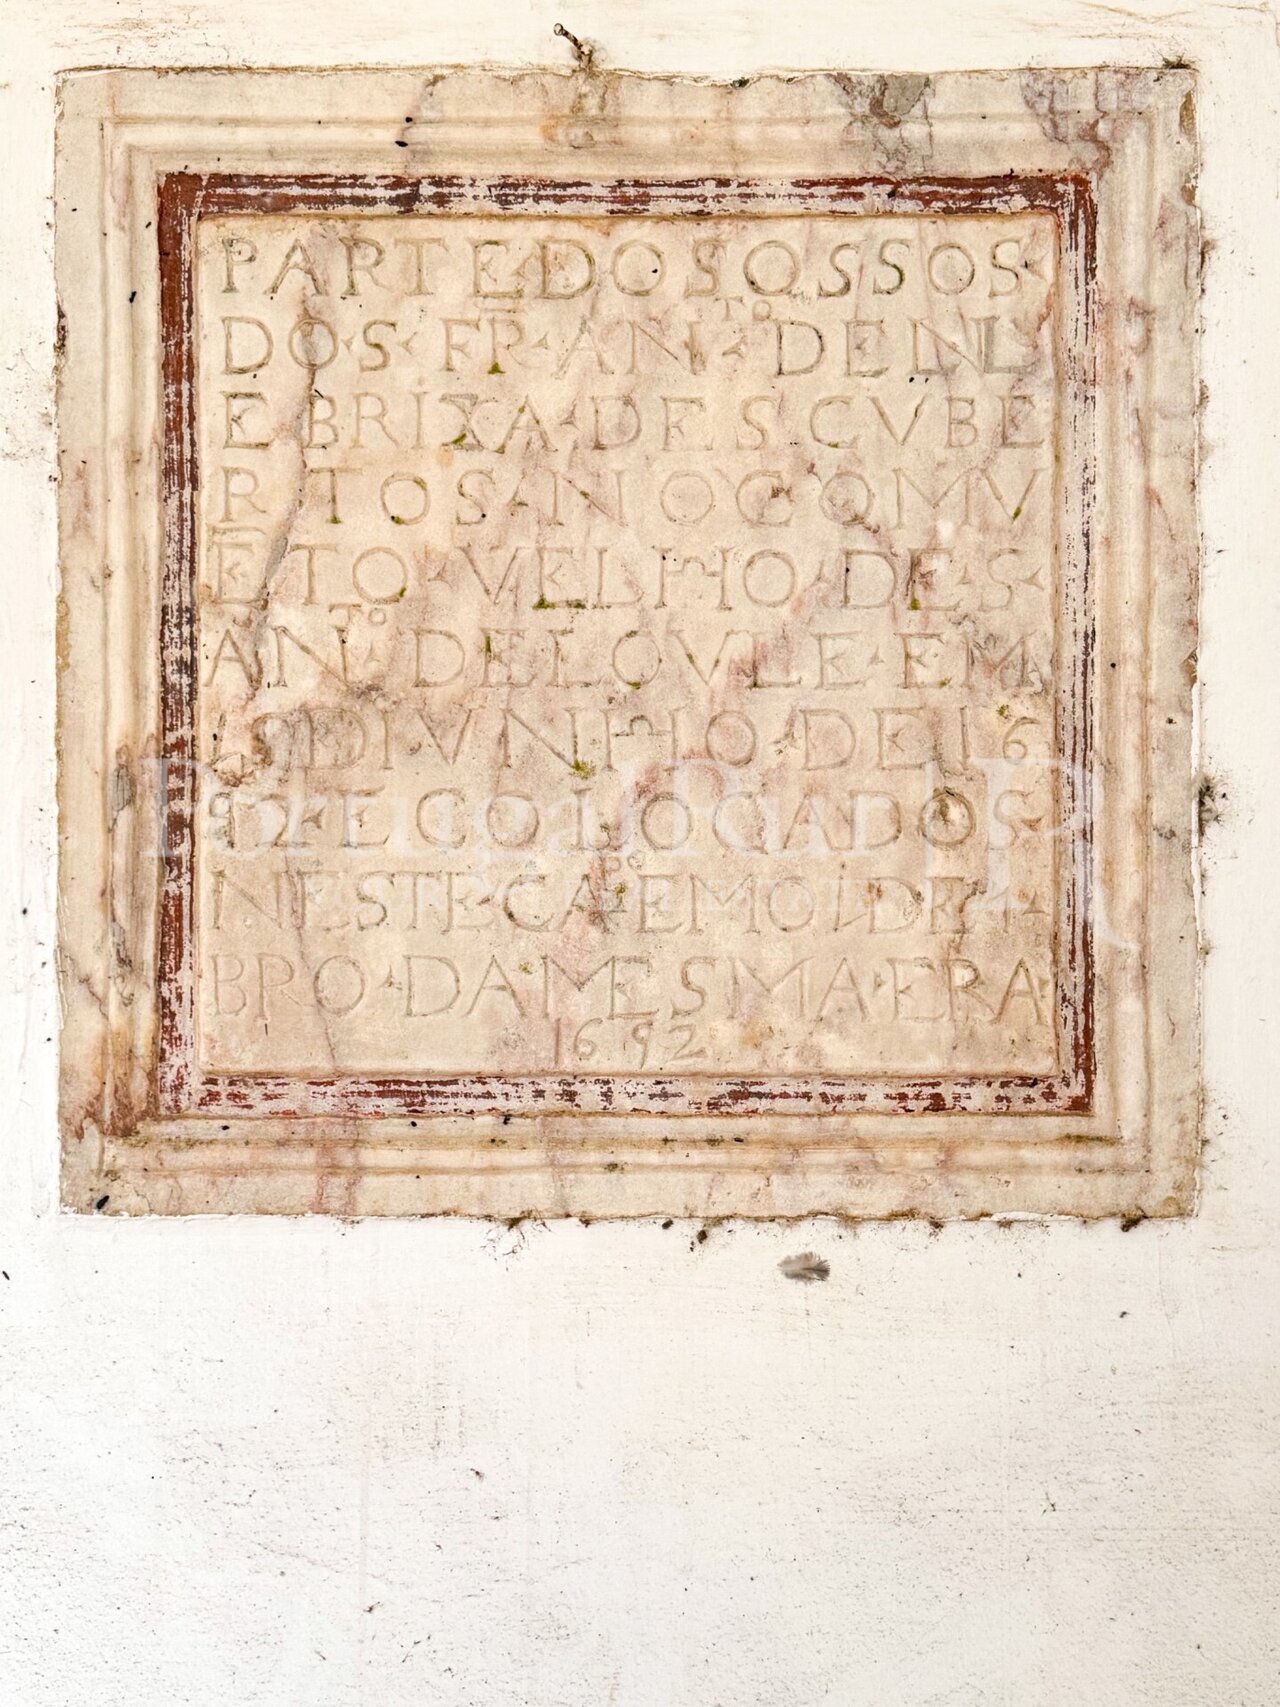 PARTE DOS OSSOS
DO·S· FR·AN·TO DE NL
EBRIXA·DESCVBE
RTOS·NO COMV
ĒTO·VELHO·DE·S·
AN·TO DE LOVLE·EM
DIVNHO·DE 16
92·E COLOCADOS·
NESTE·CA·EM O DE
BRO·DA MESMA·ERA
1692